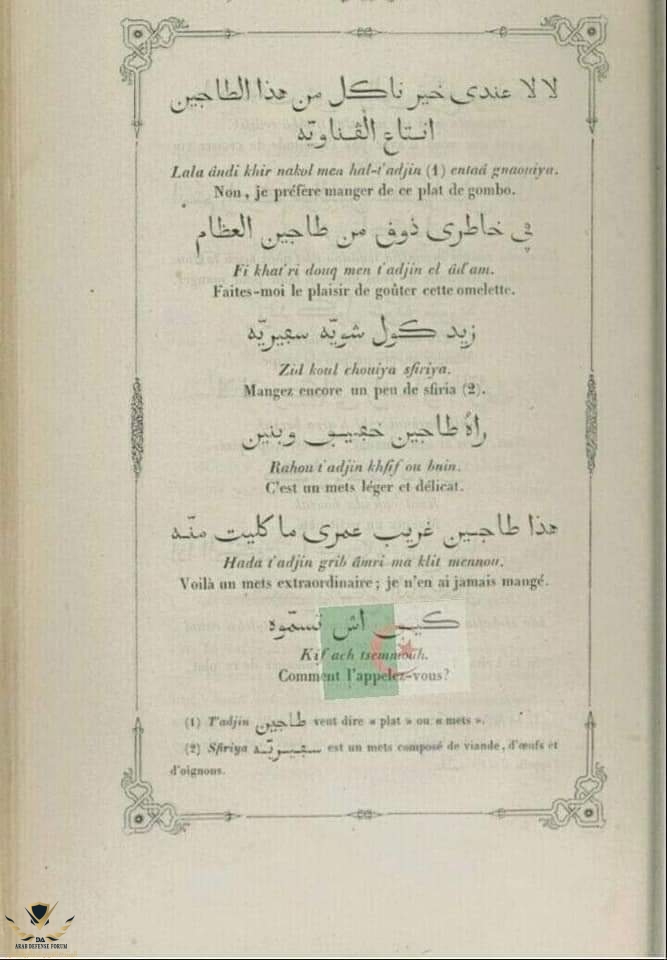 لا لا عندى خير ناكل من هذا الطاجين
انتاع الڤناويّه
Lala ândi khir nakol men hal-t'adjin (1) entaâ gnaouiya.
Non, je préfère manger de ce plat de gombo.
ڢي خاطرى ذوڢ من طاجين العظام
Fi khat'ri douq men t'adjin el âd'am.
Faites-moi le plaisir de goûter cette omelette.
زيد كول شويّه سڢيريّه
Zid koul chouiya sfiriya.
Mangez encore un peu de sfiria (2).
راهُ طاجين خڢيڢ وبنين
Rahou t'adjin khfif ou bnin.
C'est un mets léger et délicat.
هذا طاجين غريب عمرى ما كليت منّه
Hada t'adjin grib âmri ma klit mennou.
Voilà un mets extraordinaire; je n'en ai jamais mangé.
كيڢ اش تسمّوه
Kif ach tsemmouh.
Comment l'appelez-vous?
(1) T'adjin طاجين veut dire « plat » ou « mets ».
(2) Sfiriya سڢيريّه est un mets composé de viande, d'œufs et
d'oignons.
DA
ARAB DEFENSE FORUM